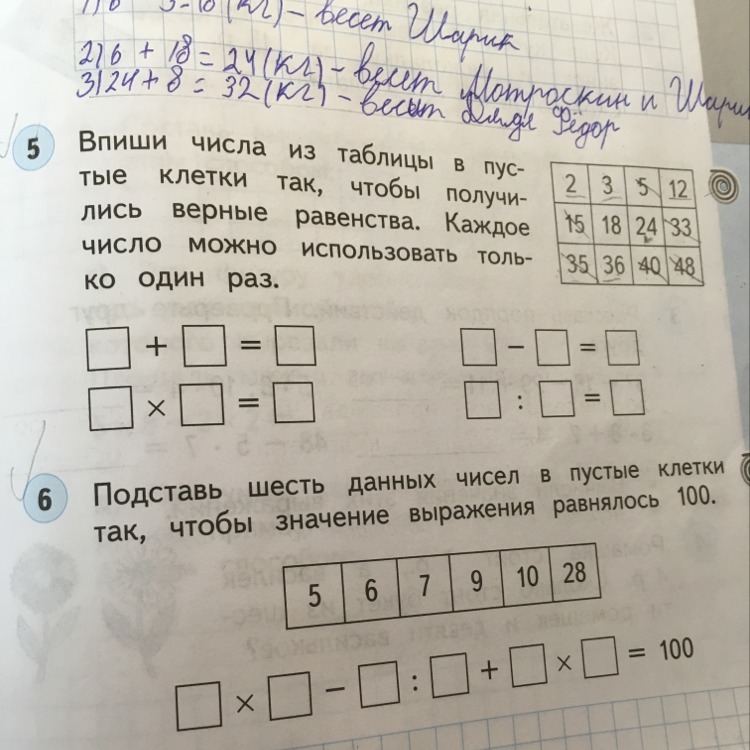 5-18 (кг) – весет Шарик
2) 6 + 18 = 24 (кг) – весет Мотроскин и Шарик
3) 24 + 8 = 32 (кг) – весыт Дядя Фёдор
5 Впиши числа из таблицы в пус-
тые клетки так, чтобы получи-
лись верные равенства. Каждое
число можно использовать толь-
ко один раз.
2 3 5 12
15 18 24 33
35 36 40 48
□ + □ = □ □ – □ = □
□ × □ = □ □ : □ = □
6 Подставь шесть данных чисел в пустые клетки
так, чтобы значение выражения равнялось 100.
5 6 7 9 10 28
□ × □ – □ : □ + □ × □ = 100